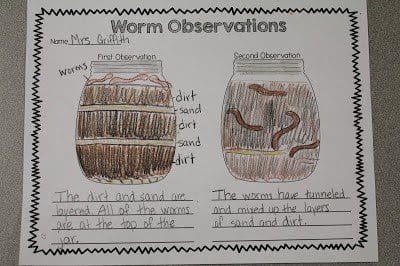 Worm Observations
Name Mrs. Griffith
First Observation
Second Observation
worms
dirt
sand
dirt
sand
dirt
The dirt and sand are
layered. All of the worms
are at the top of the
jar.
The worms have tunneled
and mixed up the layers
of sand and dirt.